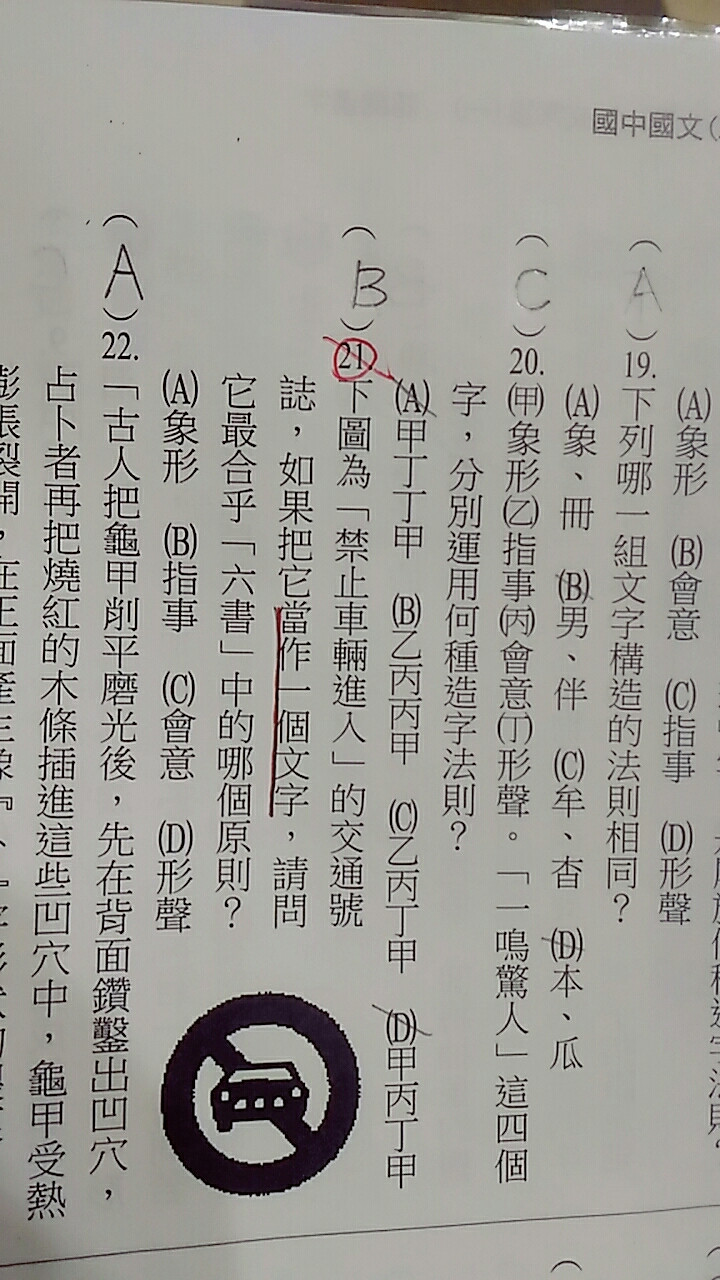 國中國文(
(A)象形 (B)會意 (C)指事 (D)形聲
(A)19.下列哪一組文字構造的法則相同？
(A)象、冊 (B)男、伴 (C)牟、杳 (D)本、瓜
(C)20.(甲)象形(乙)指事(丙)會意(丁)形聲。「一鳴驚人」這四個
字，分別運用何種造字法則？
(A)甲丁丁甲 (B)乙丙丙甲 (C)乙丙丁甲 (D)甲丙丁甲
(B)21.下圖為「禁止車輛進入」的交通號
誌，如果把它當作一個文字，請問
它最合乎「六書」中的哪個原則？
(A)象形 (B)指事 (C)會意 (D)形聲
(A)22.「古人把龜甲削平磨光後，先在背面鑽鑿出凹穴，
占卜者再把燒紅的木條插進這些凹穴中，龜甲受熱
膨脹裂開，在正面產生像『卜』